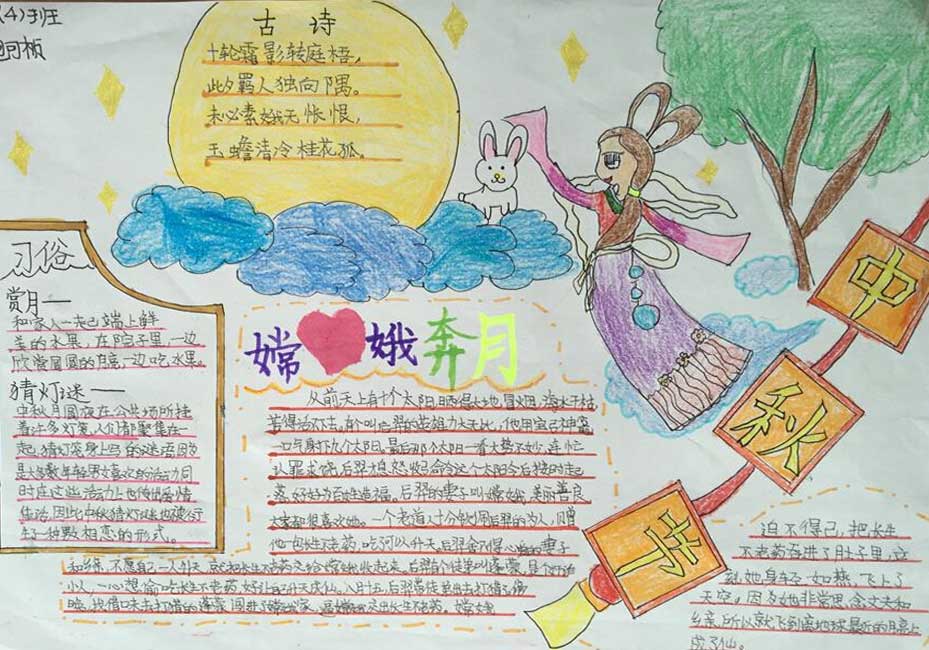 (4)班
桢
古诗
十轮霜影转庭梧，
此夕羁人独向隅。
未必素娥无怅恨，
玉蟾清冷桂花孤。
习俗
赏月一
和家人一起端上鲜
美的水果，在院子里，一边
欣赏圆圆的月亮，一边吃水果。
猜灯谜一
中秋月圆夜在公共场所挂
着许多灯笼，人们都聚集在一
起，猜灯笼身上写的谜语因为
是大多数年轻男女喜欢的活动同
时在这些活动上也传出爱情
佳话，因此中秋猜灯谜也被衍
生了一种男女相恋的形式。
嫦娥奔月
从前天上有十个太阳，晒得大地冒烟，海水干枯，
苦得活不下去，有个叫后羿的英雄力大无比，他用宝弓神箭
一口气射下九个太阳，最后那个太阳一看大势不妙，连忙
认罪求饶，后羿才息怒收弓命令这个太阳今后按时起
落，好好为百姓造福。后羿的妻子叫嫦娥，美丽善良
大家都很喜欢她。一个老道人十分钦佩后羿的为人，
他一包长生不老药，吃可以升天，后羿舍不得心爱的妻子
和乡亲，不愿自己一人升天，就把长生不老药交给嫦娥收起来，后羿有个徒弟叫蓬蒙，是个
小人，一心想偷吃长生不老药，好让自己升天成仙，八月十五，后羿带徒弟出去打猎
险，找借口未去打猎的蓬蒙，闯进了嫦娥家，逼嫦娥交出长生不老药，嫦娥
迫不得已，把长生
不老药吞进了肚子里，立
刻她身轻如燕，飞上了
天空，因为她非常思念丈夫和
乡亲，所以就飞到离地球最近的月亮上
成了仙。
中
秋
节